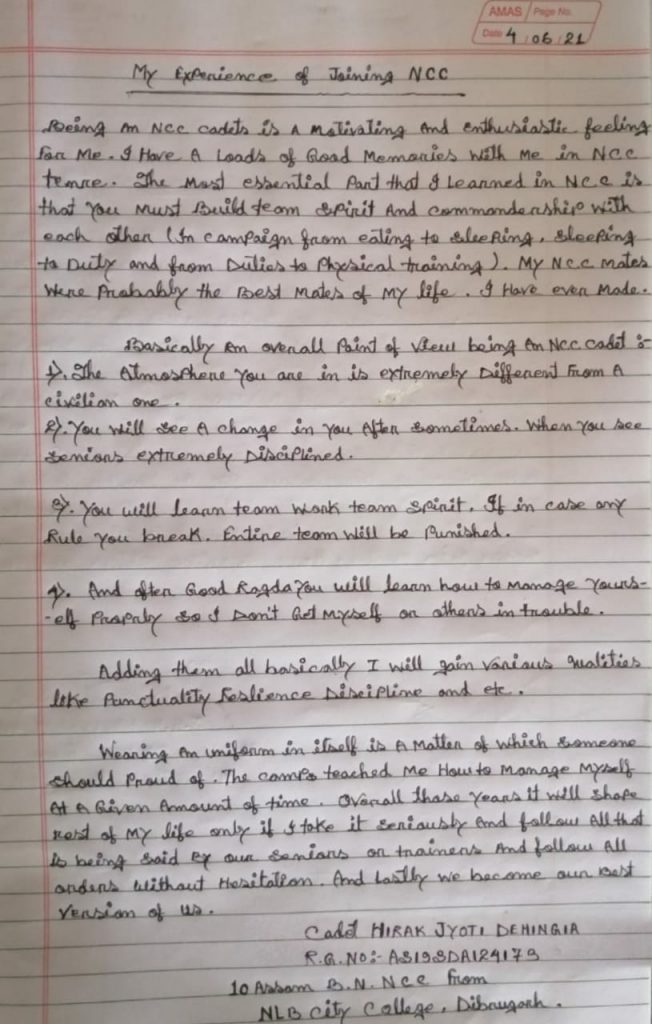 AMAS Page No.
Date 4 06 21
My Experience of Joining NCC
Being An NCC cadets is A Motivating And enthusiastic feeling
for Me. I Have A Loads of Good Memories With Me in NCC
tenure. The Most essential Part that I Learned in NCC is
that You Must Build team spirit And commandership With
each other (In campaign from eating to sleeping, sleeping
to Duty and from Duties to Physical training). My NCC mates
Were Probably the Best Mates of My life. I Have even Made.
Basically Am overall Point of View being An NCC cadet :-
1). The Atmosphere You are in is extremely Different From A
civilian one.
2). You Will See A change in You After Sometimes. When You see
Seniors extremely Disciplined.
3). You will learn team Work team Spirit. If in case any
Rule You break. Entire team Will be Punished.
4). And after Good Ragda You will learn how to Manage Yours-
-elf Proparly So I Don't Get Myself or others in trouble.
Adding them all basically I will gain various qualities
like Punctuality Reslience Discipline and etc.
Wearing An uniform in itself is A Matter of which Someone
should Proud of. The camps teached Me How to Manage Myself
At A Given Amount of time. Overall those Years it will shape
rest of My life only if I take it seriously And follow All that
is being said By our Seniors or trainers And follow All
orders Without Hesitation. And Lastly we become our Best
Version of us.
Cadet HIRAK JYOTI DEHINGIA
R.G.NO:- AS19SDA124179
10 Assam B.N. NCC From
NLB City College, Dibrugarh.